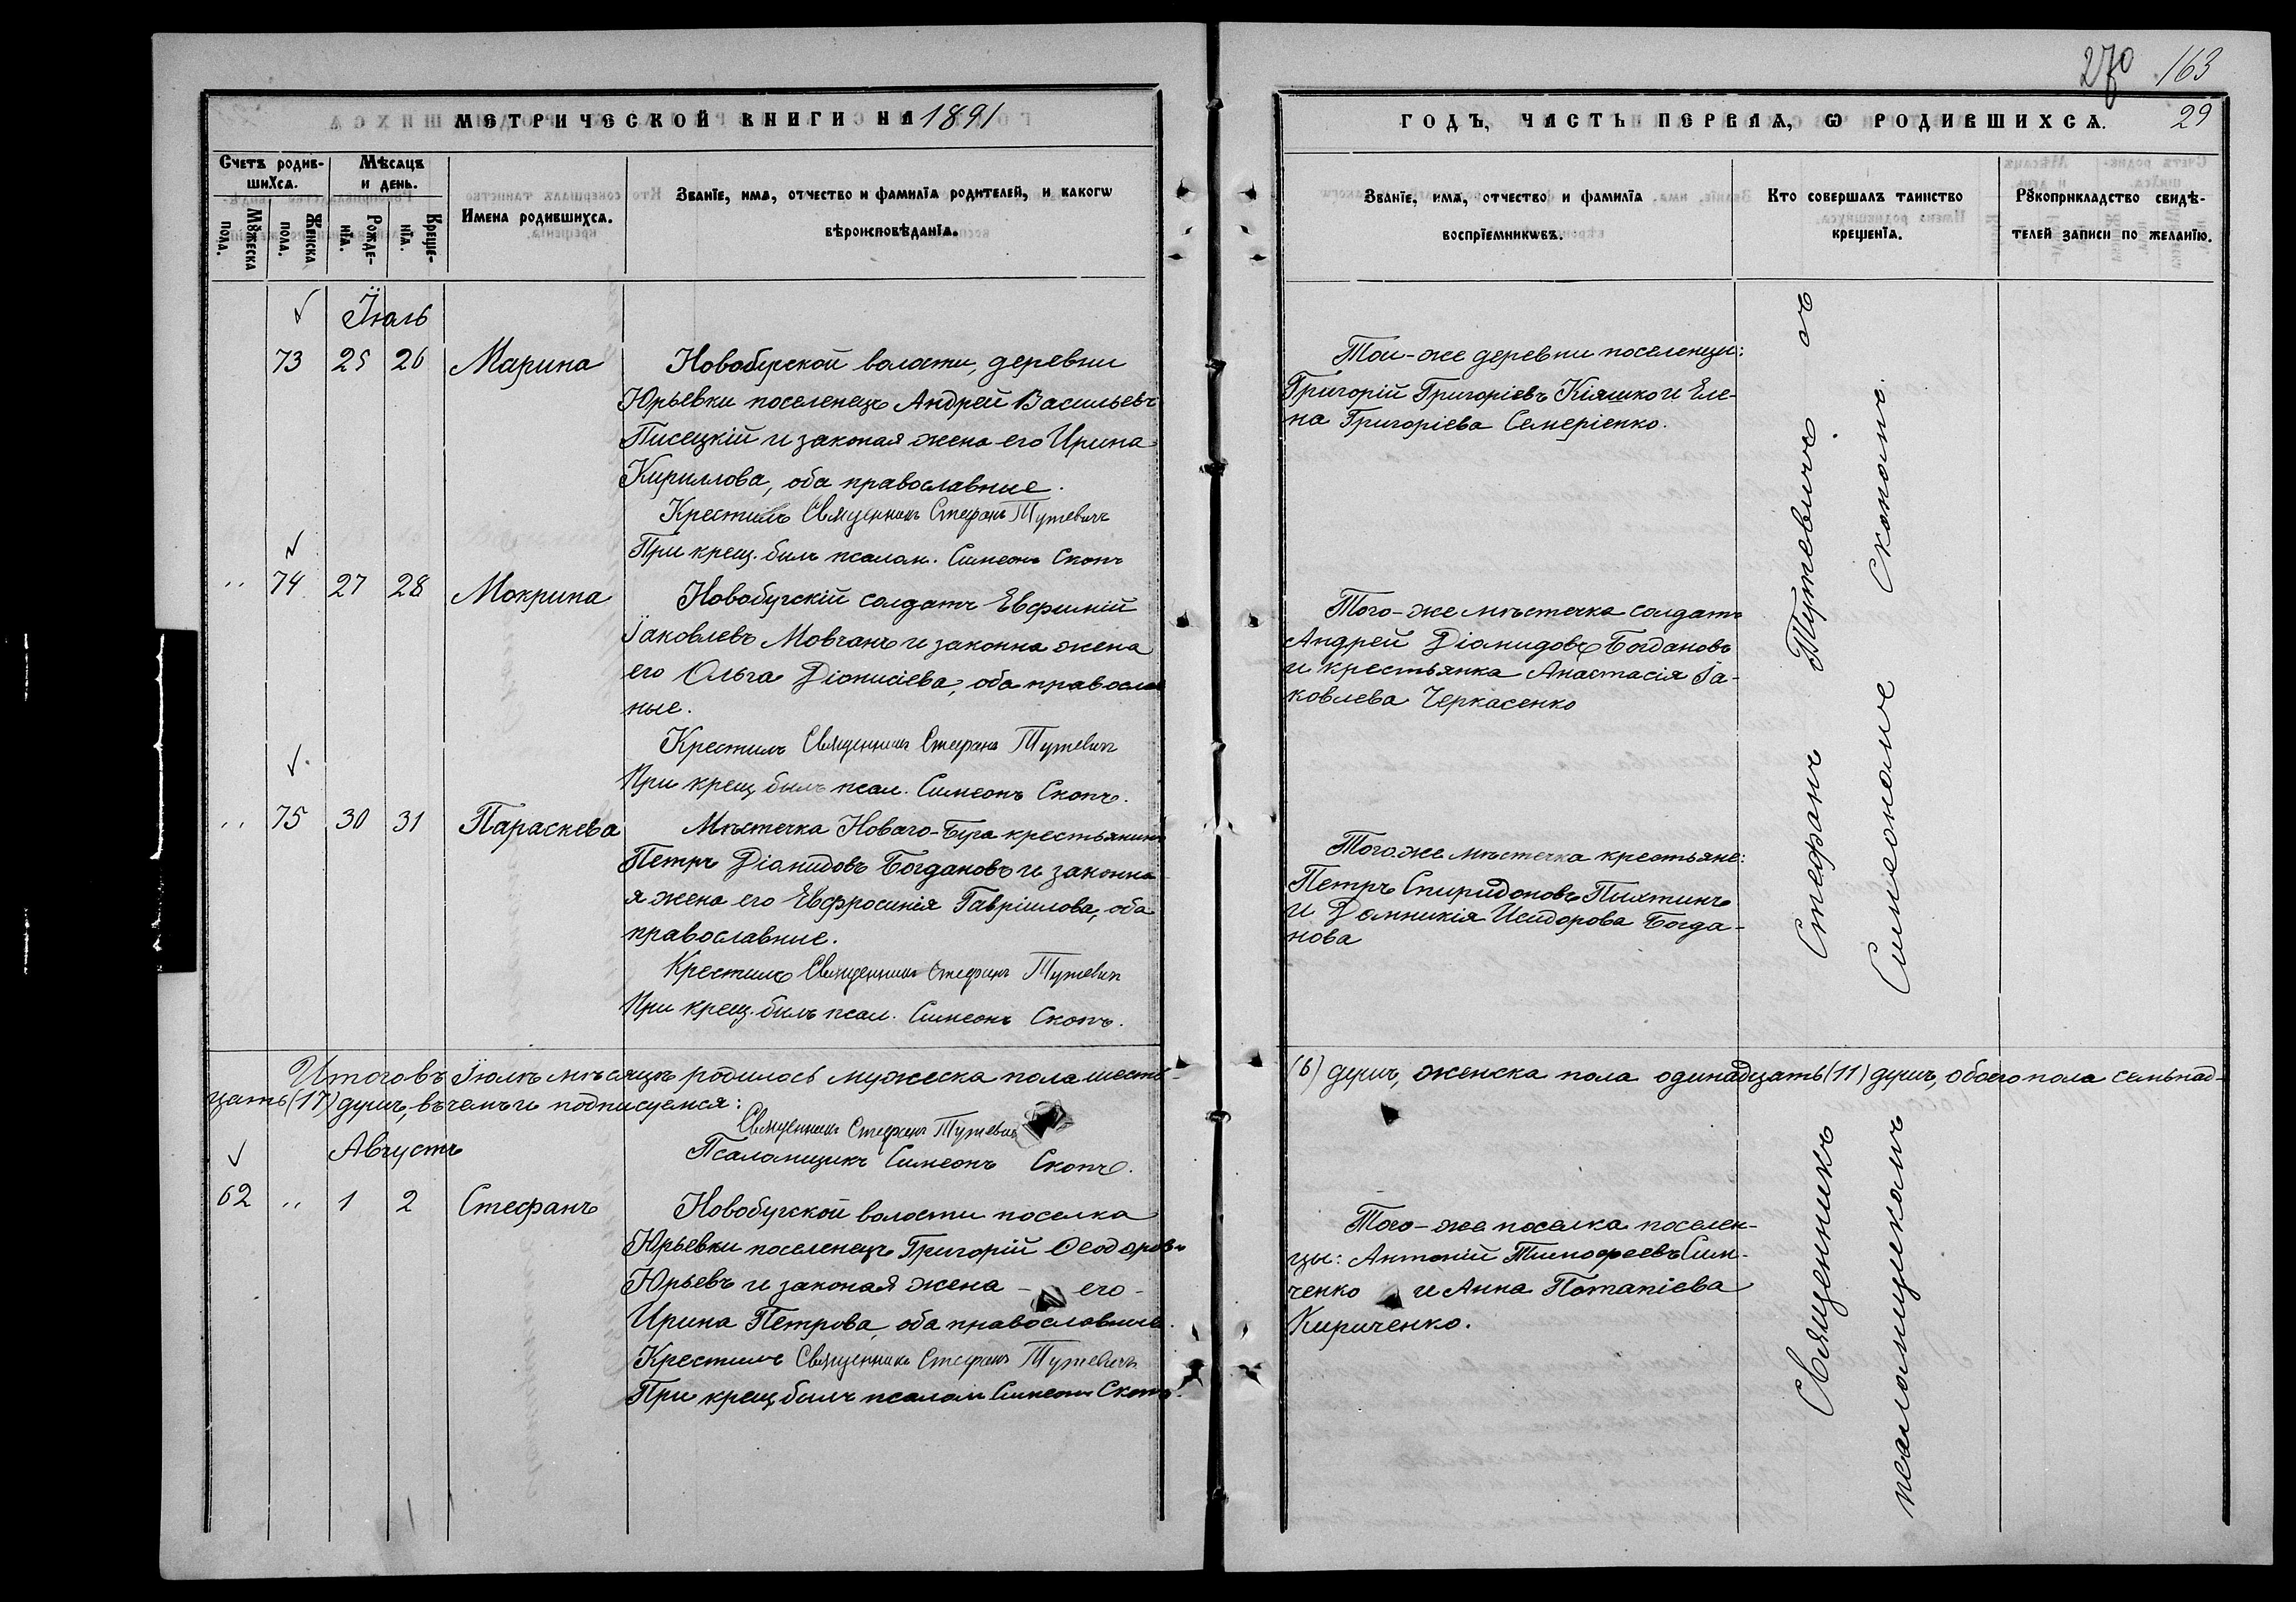 270 163
МЕТРИЧЕСКОЙ КНИГИ НА 1891
ГОДЪ, ЧАСТЬ ПЕРВАЯ, Ѡ РОДИВШИХСЯ. 29
Счетъ родив-
шихся.
Мѣсяцъ
и день.
Мꙋжеска
пола.
Женска
пола.
Рожде-
нїа.
Креще-
нїа.
Имена родившихся.
Званїе, имя, отчество и фамилїа родителей, и какогѡ
вѣроисповѣданїа.
Званїе, имя, отчество и фамилїа
воспрїемникѡвъ.
Кто совершалъ таинство
крещенїа.
Рꙋкоприкладство свидѣ-
телей записи по желанїю.
Їюль
73 25 26 Марина
Новобугской волости, деревни
Юрьевки поселенецъ Андрей Васильевъ
Писецкій и законая жена его Ирина
Кириллова, оба православные.
Крестилъ Священникъ Стефанъ Тутевичъ
При крещ. былъ псалом. Симеонъ Скопъ
Тои-же деревни поселенцы:
Григорій Григоріевъ Кіяшко и Еле-
на Григоріева Семеріенко.
" 74 27 28 Мокрина
Новобугскій солдатъ Евфимій
Їаковлевъ Мовчанъ и законна жена
его Ольга Діонисіева, оба православ
ные.
Крестилъ Священникъ Стефанъ Тутевичъ
При крещ. былъ псал. Симеонъ Скопъ.
Того-же мѣстечка солдатъ
Андрей Діомидовъ Богдановъ
и крестьянка Анастасія Їа-
ковлева Черкасенко
" 75 30 31 Параскева
Мѣстечка Новаго-Буга крестьянинъ
Петръ Діомидовъ Богдановъ и законна
я жена его Евфросинія Гавріилова, оба
православные.
Крестилъ Священникъ Стефанъ Тутевичъ
При крещ. былъ псал. Симеонъ Скопъ.
Того же мѣстечка крестьяне:
Петръ Спиридоновъ Пыхтинъ
и Домникія Исидорова Богда-
нова
Итого въ Їюлѣ мѣсяцѣ родилось мужеска пола шесть
(6) душъ, женска пола одинадцать (11) душъ, обоего пола семьнад-
цать (17) душъ, въ чемъ и подписуемся:
Священникъ Стефанъ Тутевичъ
Псаломщикъ Симеонъ Скопъ.
Августъ
62 " 1 2 Стефанъ
Новобугской волости поселка
Юрьевки поселенецъ Григорій Ѳеодоровъ
Юрьевъ и законая жена - его -
Ирина Петрова, оба православные.
Крестилъ Священникъ Стефанъ Тутевичъ
При крещ. былъ псалом Симеонъ Скопъ.
Того-же поселка поселен-
цы: Антоній Тимофеевъ Сим-
ченко и Анна Потапіева
Кириченко.
Священникъ Стефанъ Тутевичъ съ
псаломщикомъ Симеономъ Скопомъ.